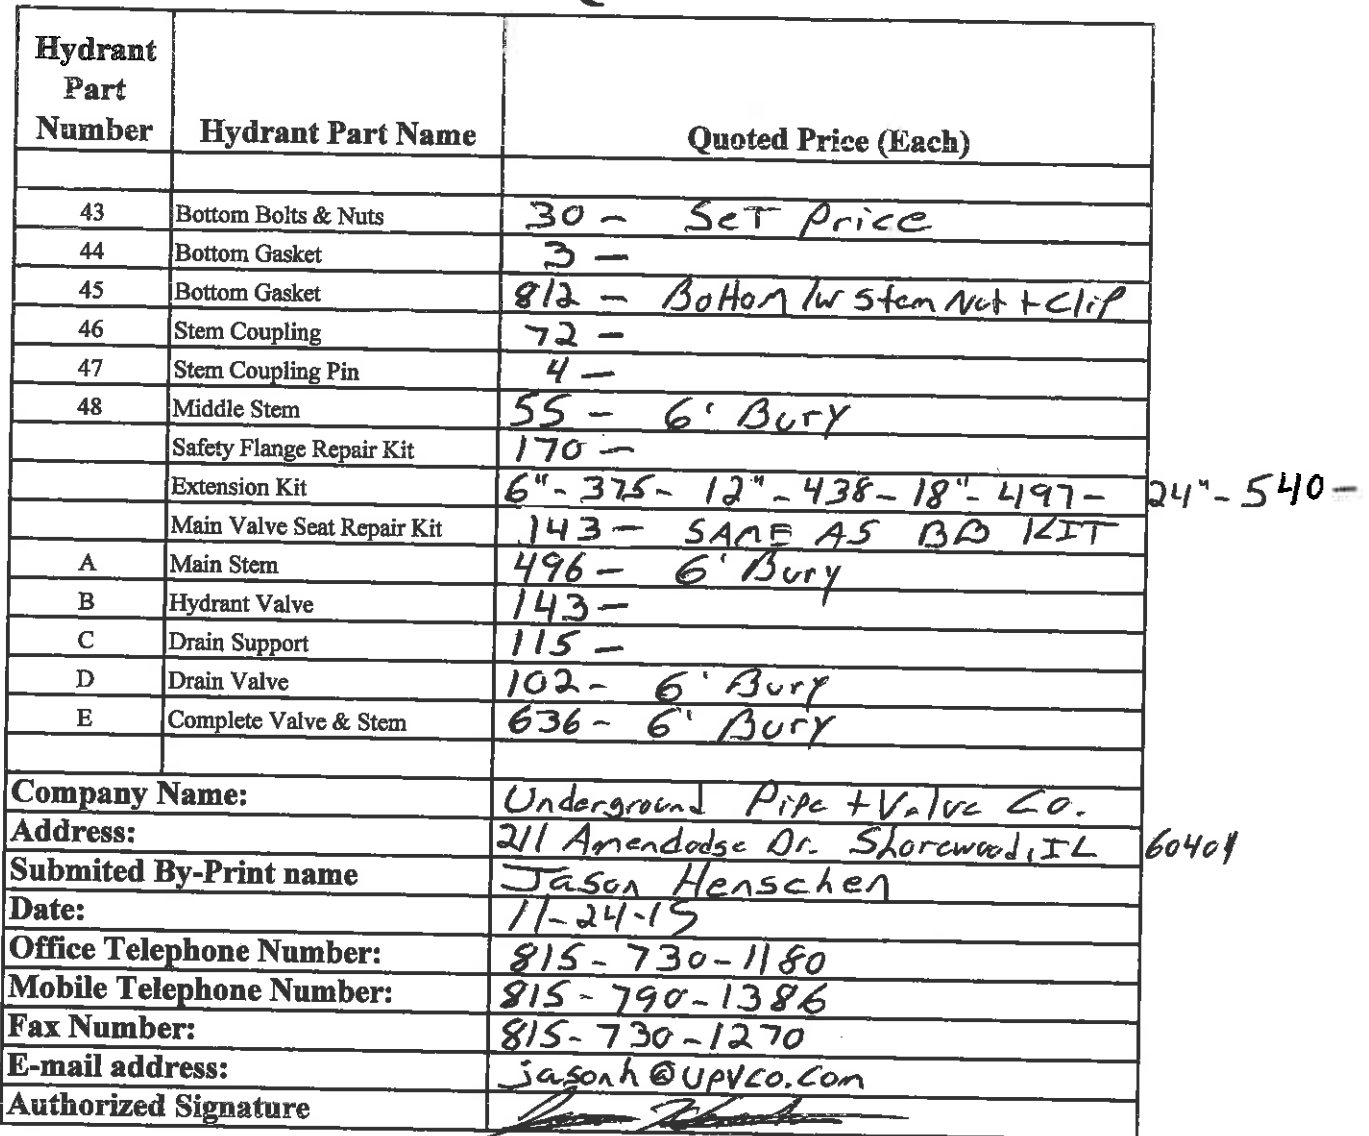 Hydrant
Part
Number Hydrant Part Name Quoted Price (Each)
43 Bottom Bolts & Nuts 30 - Set Price
44 Bottom Gasket 3 -
45 Bottom Gasket 812 - Bottom /w Stem Nut + Clip
46 Stem Coupling 72 -
47 Stem Coupling Pin 4 -
48 Middle Stem 55 - 6' Bury
Safety Flange Repair Kit 170 -
Extension Kit 6" - 375 - 12" - 438 - 18" - 497 - 24" - 540 -
Main Valve Seat Repair Kit 143 - SAME AS BB KIT
A Main Stem 496 - 6' Bury
B Hydrant Valve 143 -
C Drain Support 115 -
D Drain Valve 102 - 6' Bury
E Complete Valve & Stem 636 - 6' Bury
Company Name: Underground Pipe + Valve Co.
Address: 211 Amendodge Dr. Shorewood, IL 60404
Submited By-Print name Jason Henschen
Date: 11-24-15
Office Telephone Number: 815-730-1180
Mobile Telephone Number: 815-790-1386
Fax Number: 815-730-1270
E-mail address: jasonh@upvco.com
Authorized Signature